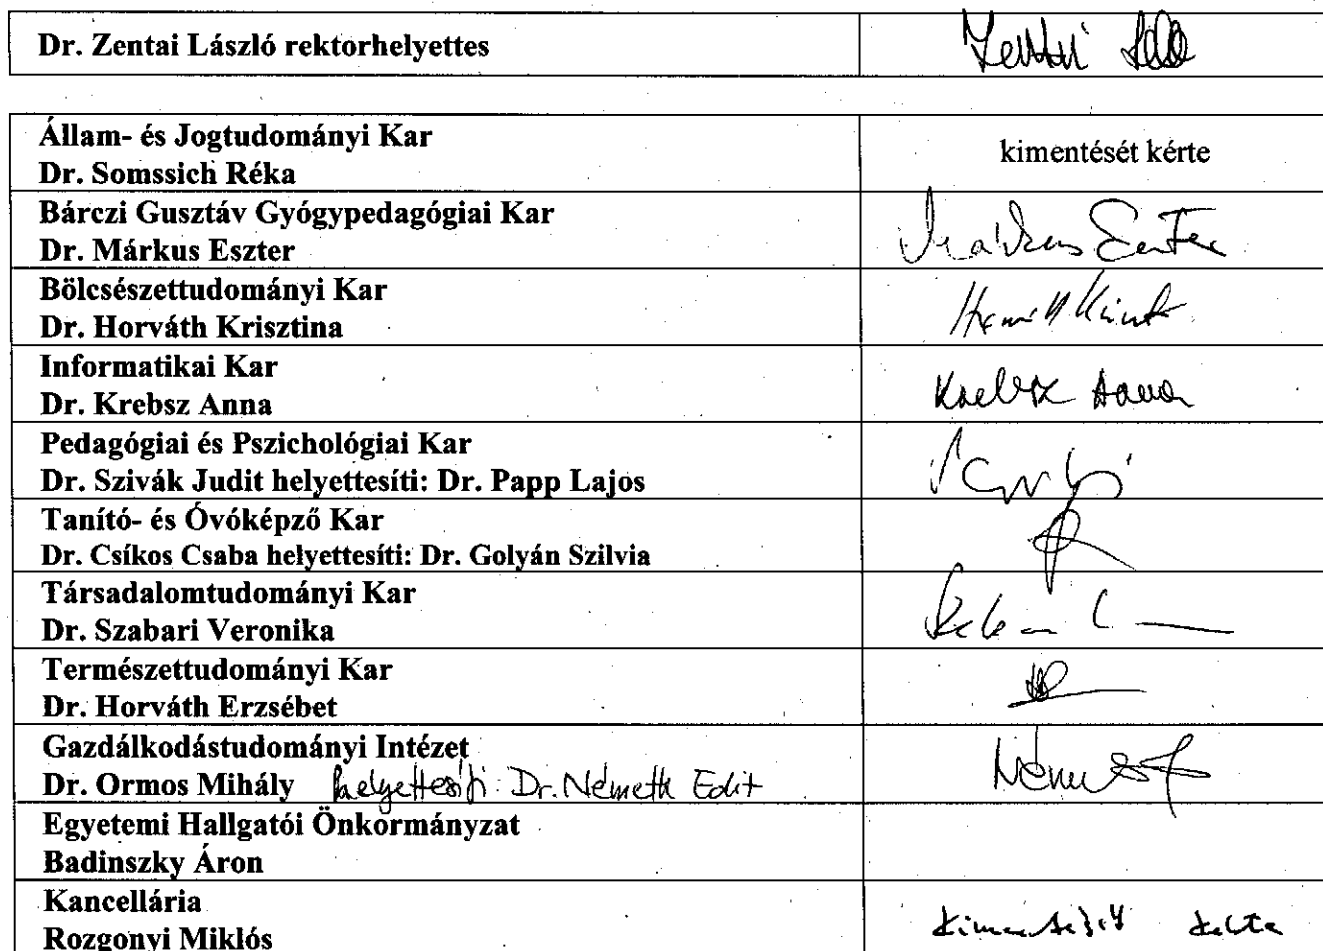 Dr. Zentai László rektorhelyettes
Állam- és Jogtudományi Kar
Dr. Somssich Réka
kimentését kérte
Bárczi Gusztáv Gyógypedagógiai Kar
Dr. Márkus Eszter
Márkus Eszter
Bölcsészettudományi Kar
Dr. Horváth Krisztina
Informatikai Kar
Dr. Krebsz Anna
Krebsz Anna
Pedagógiai és Pszichológiai Kar
Dr. Szivák Judit helyettesíti: Dr. Papp Lajos
Tanító- és Óvóképző Kar
Dr. Csíkos Csaba helyettesíti: Dr. Golyán Szilvia
Társadalomtudományi Kar
Dr. Szabari Veronika
Természettudományi Kar
Dr. Horváth Erzsébet
Gazdálkodástudományi Intézet
Dr. Ormos Mihály helyettesíti: Dr. Németh Edit
Egyetemi Hallgatói Önkormányzat
Badinszky Áron
Kancellária
Rozgonyi Miklós
kimentését kérte